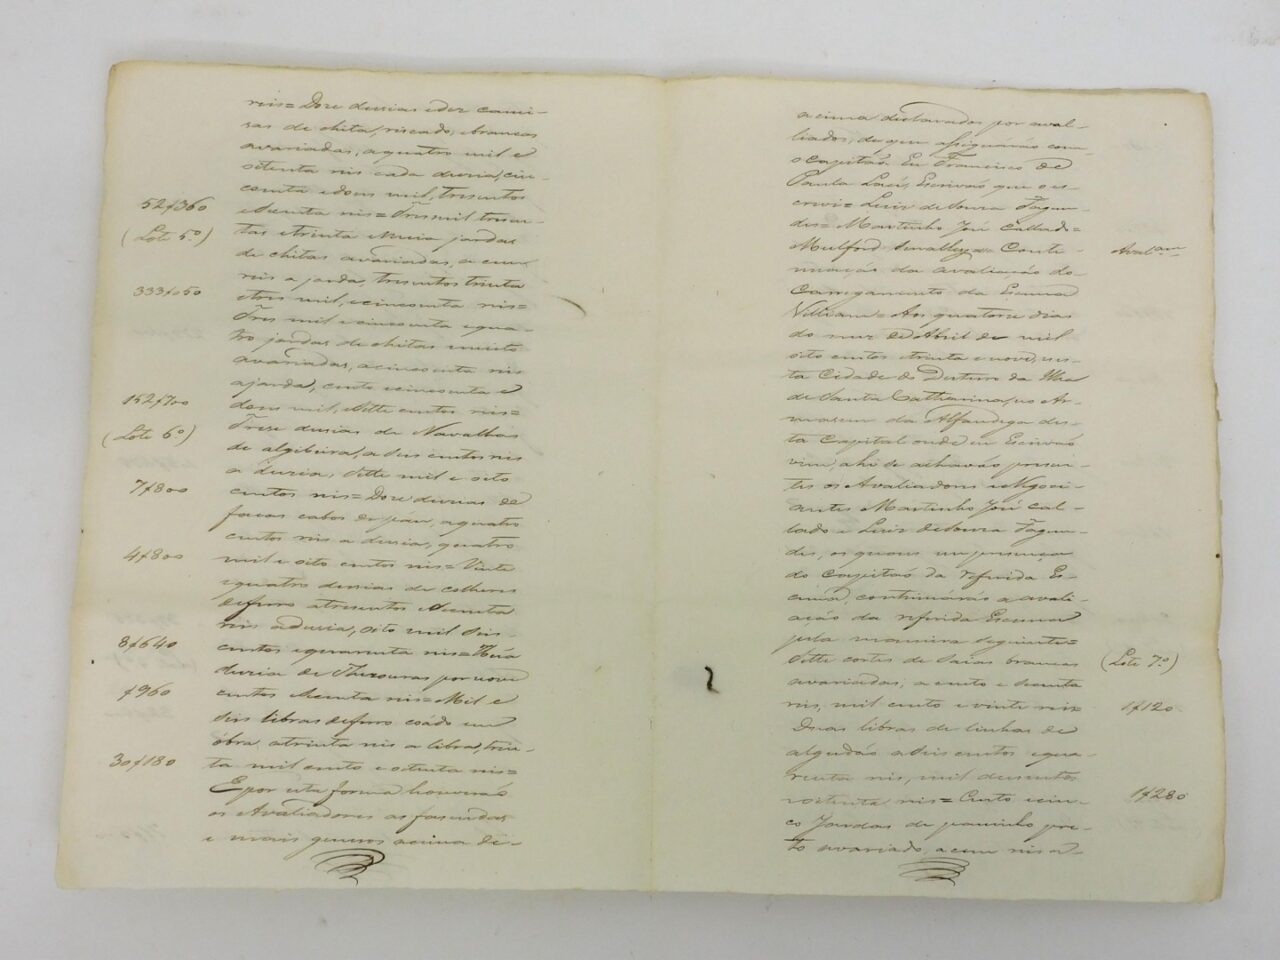 reis= Doze duzias e dez cami-
sas de chita, riscado, e brancas
avariadas, a quatro mil e
oitenta reis cada duzia, cin-
coenta e dous mil, tresentos
52$360
e secenta reis= Tres mil tresen-
(Lote 5.º)
tas e trinta e meia jardas
de chitas avariadas, a cem
reis a jarda, tresentos trinta
333$050
e tres mil, e cincoenta reis=
Tres mil e cincoenta e qua-
tro jardas de chitas muito
avariadas, a cincoenta reis
a jarda, cento e cincoenta e
152$700
dous mil, e sette centos reis=
(Lote 6º)
Treze duzias de Navalhas
de algibeira, a seis centos reis
a duzia, sette mil e oito
7$800
centos reis= Doze duzias de
facas cabos de páu, a quatro
centos reis a duzia, quatro
4$800
mil e oito centos reis= Vinte
e quatro duzias de colheres
de ferro a tresentos e secenta
reis a duzia, oito mil seis
8$640
centos e quarenta reis= Húa
duzia de Thezouras por nove
$960
centos e secenta reis= Mil e
seis libras de ferro coado em
óbra, a trinta reis a libra, trin-
30$180
ta mil cento e oitenta reis=
E por esta forma houverão
os Avaliadores as fasendas
e mais generos acima de-
acima declarados por aval-
liados, de que assignárão com
o Capitão. Eu Francisco de
Paula Lacé, Escrivão que o es-
crevi= Luiz de Souza Fagun-
des= Martinho José Callado=
Mulford = Conti-
Aval.am
nuação da avaliação do
Carregamento da Escuna
William= Aos quatorze dias
do mez de Abril de mil
oito centos e trinta e nove, nes-
ta Cidade do Desterro da Ilha
de Santa Catharina, no Ar-
mazem da Alfandega des-
ta Capital onde eu Escrivão
vim, ahi se achavão presen-
tes os Avaliadores e Negoci-
antes Martinho José Cal-
lado e Luiz de Souza Fagun-
des, os quaes em presença
do Capitão da referida Es-
cuna, continuárão a avali-
ação da referida Escuna
pela maneira seguinte=
Sette cortes de Saias brancas
(Lote 7.º)
avariadas, a cento e secenta
reis, mil cento e vinte reis=
1$120
Duas libras de linhas de
algudão a seis centos e qua-
renta reis, mil dusentos
e oitenta reis= Cento e cin-
1$280
co Jardas de paninho pre-
to avariado, a cem reis a